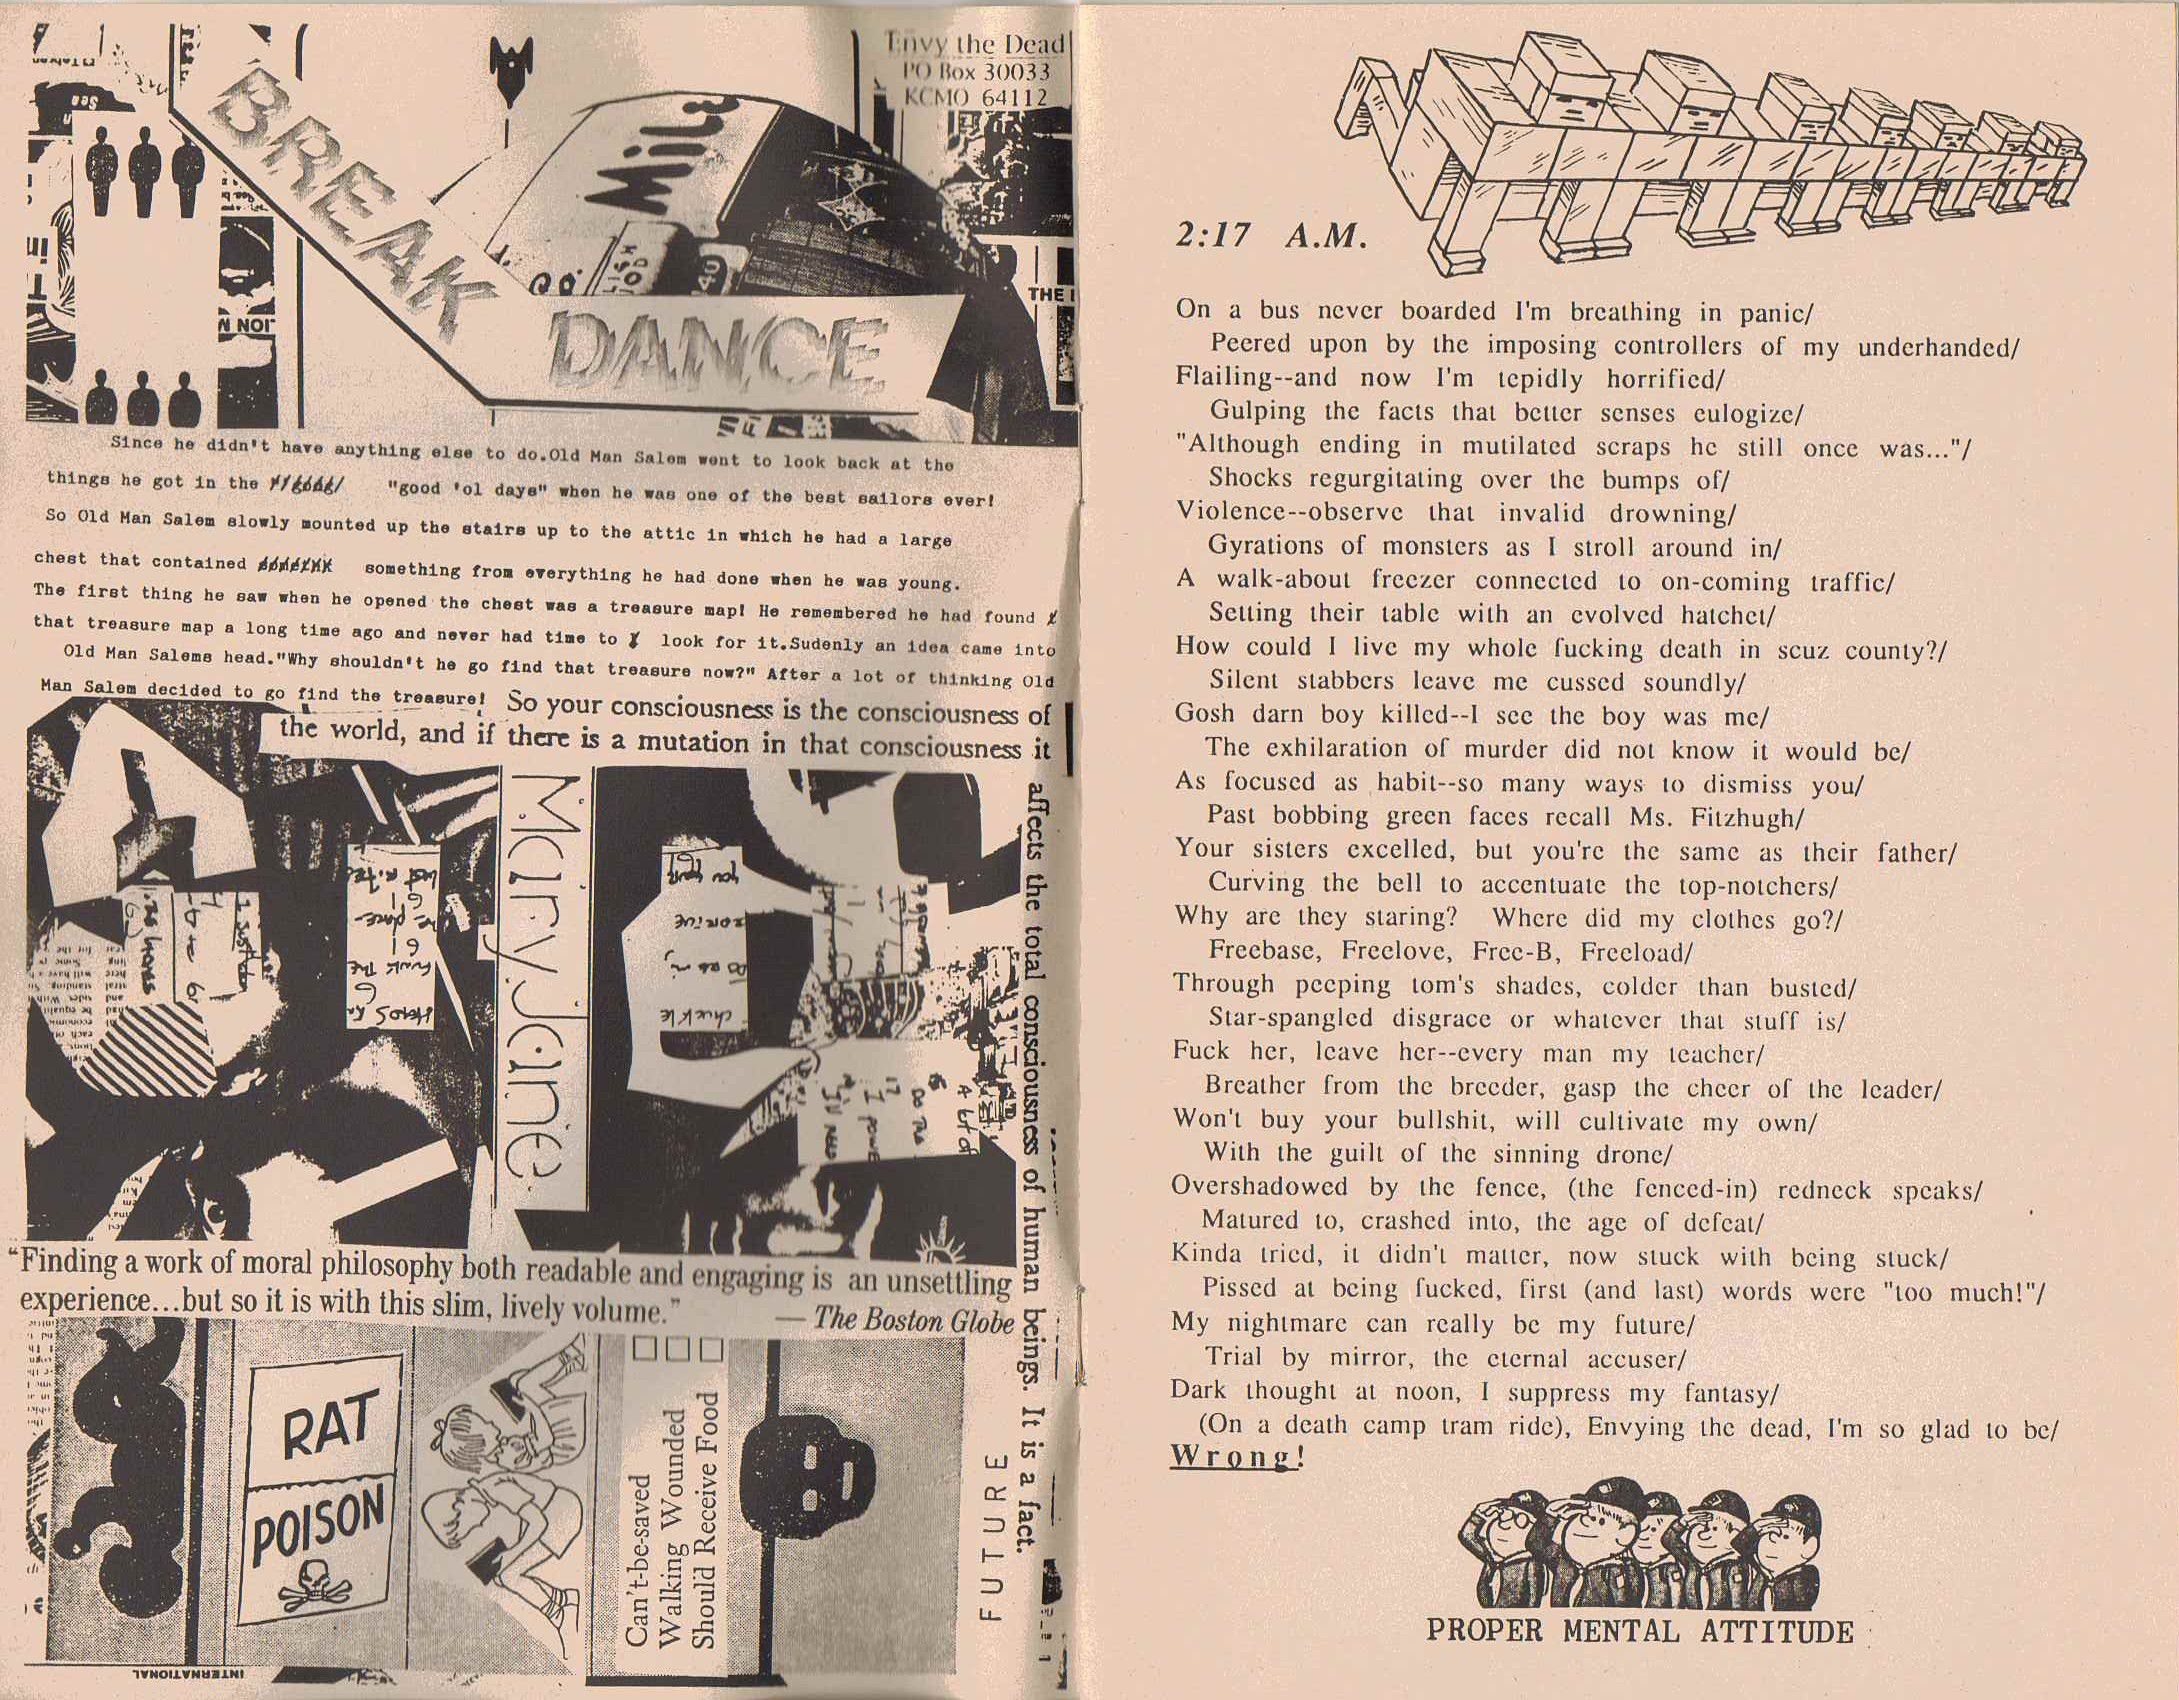 Envy the Dead
PO Box 30033
KCMO 64112
BREAK
DANCE
THE
Since he didn't have anything else to do.Old Man Salem went to look back at the
things he got in the "good 'ol days" when he was one of the best sailors ever!
So Old Man Salem slowly mounted up the stairs up to the attic in which he had a large
chest that contained something from everything he had done when he was young.
The first thing he saw when he opened the chest was a treasure map! He remembered he had found
that treasure map a long time ago and never had time to look for it.Sudenly an idea came into
Old Man Salems head."Why shouldn't he go find that treasure now?" After a lot of thinking Old
Man Salem decided to go find the treasure!
So your consciousness is the consciousness of
the world, and if there is a mutation in that consciousness it
affects the total consciousness of human beings. It is a fact.
Mary Jane
"Finding a work of moral philosophy both readable and engaging is an unsettling
experience...but so it is with this slim, lively volume."
— The Boston Globe
RAT
POISON
Can't-be-saved
Walking Wounded
Should Receive Food
FUTURE
INTERNATIONAL
2:17 A.M.
On a bus never boarded I'm breathing in panic/
Peered upon by the imposing controllers of my underhanded/
Flailing--and now I'm tepidly horrified/
Gulping the facts that better senses eulogize/
"Although ending in mutilated scraps he still once was..."/
Shocks regurgitating over the bumps of/
Violence--observe that invalid drowning/
Gyrations of monsters as I stroll around in/
A walk-about freezer connected to on-coming traffic/
Setting their table with an evolved hatchet/
How could I live my whole fucking death in scuz county?/
Silent stabbers leave me cussed soundly/
Gosh darn boy killed--I see the boy was me/
The exhilaration of murder did not know it would be/
As focused as habit--so many ways to dismiss you/
Past bobbing green faces recall Ms. Fitzhugh/
Your sisters excelled, but you're the same as their father/
Curving the bell to accentuate the top-notchers/
Why are they staring? Where did my clothes go?/
Freebase, Freelove, Free-B, Freeload/
Through peeping tom's shades, colder than busted/
Star-spangled disgrace or whatever that stuff is/
Fuck her, leave her--every man my teacher/
Breather from the breeder, gasp the cheer of the leader/
Won't buy your bullshit, will cultivate my own/
With the guilt of the sinning drone/
Overshadowed by the fence, (the fenced-in) redneck speaks/
Matured to, crashed into, the age of defeat/
Kinda tried, it didn't matter, now stuck with being stuck/
Pissed at being fucked, first (and last) words were "too much!"/
My nightmare can really be my future/
Trial by mirror, the eternal accuser/
Dark thought at noon, I suppress my fantasy/
(On a death camp tram ride), Envying the dead, I'm so glad to be/
Wrong!
PROPER MENTAL ATTITUDE